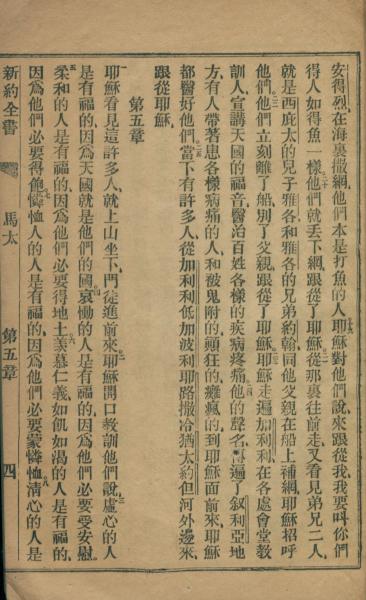 安得烈在海裏撒網他們本是打魚的人耶穌對他們說來跟從我我要呌你們
得人如得魚一樣他們就丟下網跟從了耶穌從那裏往前走又看見弟兄二人
就是西庇太的兒子雅各和雅各的兄弟約翰同他父親在船上補網耶穌招呼
他們他們立刻離了船別了父親跟從了耶穌耶穌走遍加利利在各處會堂教
訓人宣講天國的福音醫治百姓各樣的疾病疼痛他的聲名傳遍了叙利亞地
方有人帶著患各樣病痛的人和被鬼附的顚狂的癱瘋的到耶穌面前來耶穌
都醫好他們當下有許多人從加利利低加波利耶路撒冷猶太約但河外邊來
跟從耶穌
第五章
耶穌看見這許多人就上山坐下門徒進前來耶穌開口教訓他們說虛心的人
是有福的因爲天國就是他們的國哀慟的人是有福的因爲他們必要受安慰
柔和的人是有福的因爲他們必要得地土羨慕仁義如飢如渴的人是有福的
因爲他們必要得飽憐恤人的人是有福的因爲他們必要蒙憐恤清心的人是
新約全書
馬太
第五章
四